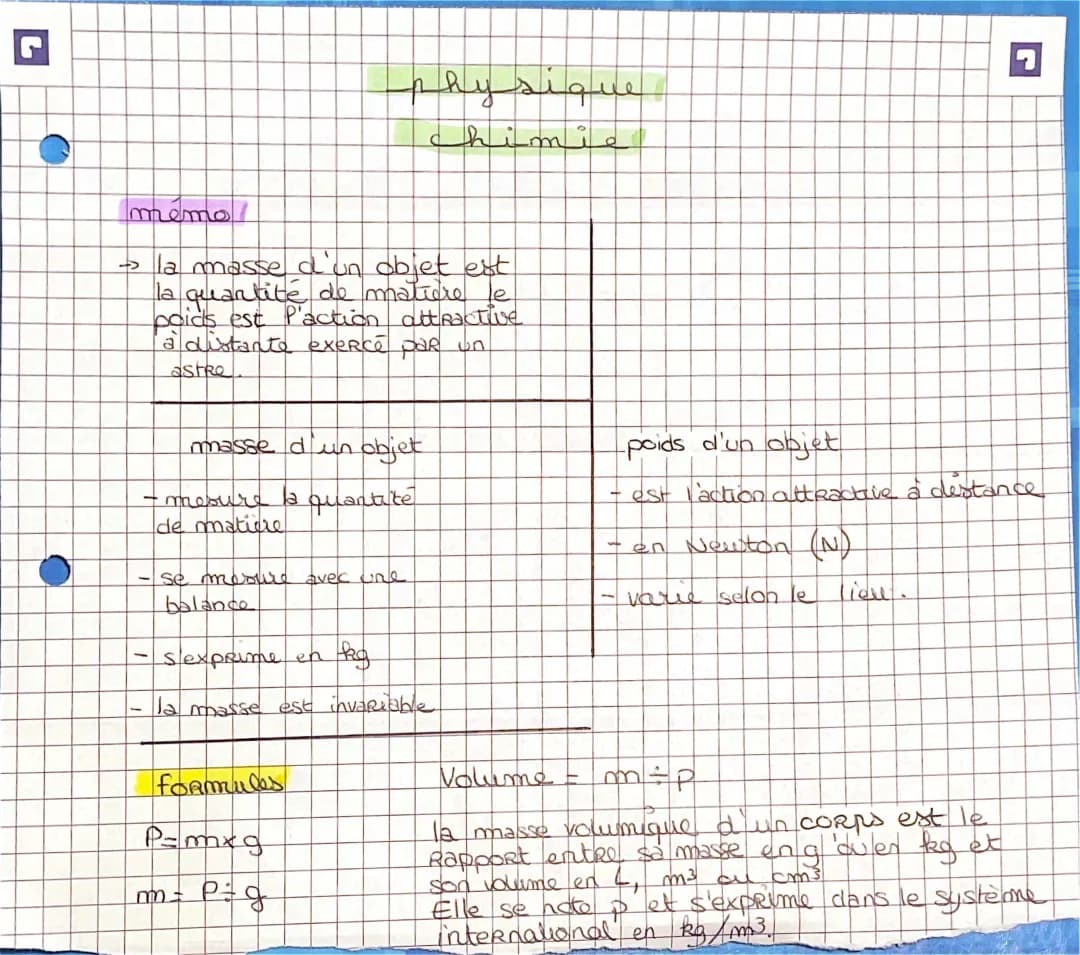 physique
chimie
mémo
→ la masse d'un objet est
la quantité de matière le
poids est l'action attractive
à distante exercé par un
astre.
masse d'un objet
- mesure la quantité
de matière
- se mesure avec une
balance
- s'exprime en kg
- la masse est invariable
poids d'un objet
- est l'action attractive à distance
- en Newton (N)
- varie selon le lieu.
formules
P=m×g
m= P÷g
Volume = m÷p
la masse volumique d'un corps est le
rapport entre sa masse en g ou en kg et
son volume en L, m³ ou cm³
Elle se note p et s'exprime dans le système
international en kg/m³.